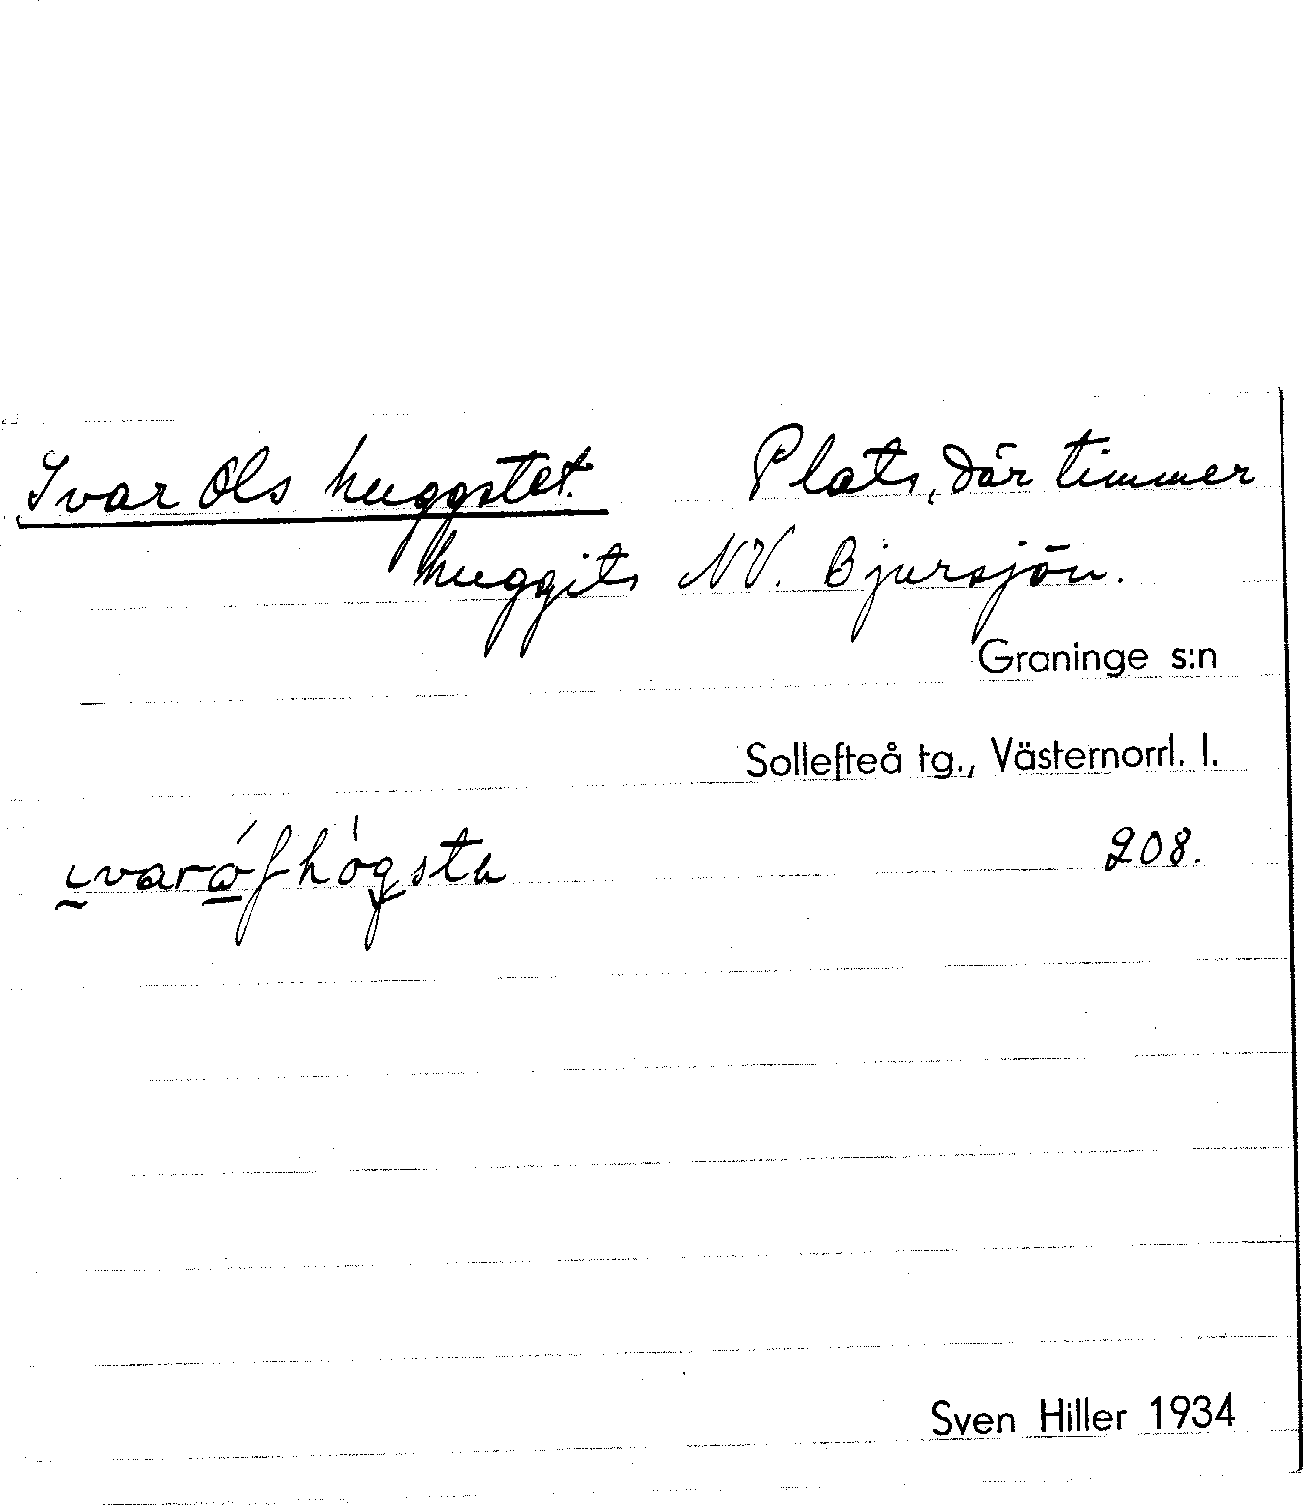 Ivar Ols huggstet. Plats, där timmer
huggits NV. Bjursjön.
Graninge s:n
Sollefteå tg., Västernorrl. l.
208.
Sven Hiller 1934